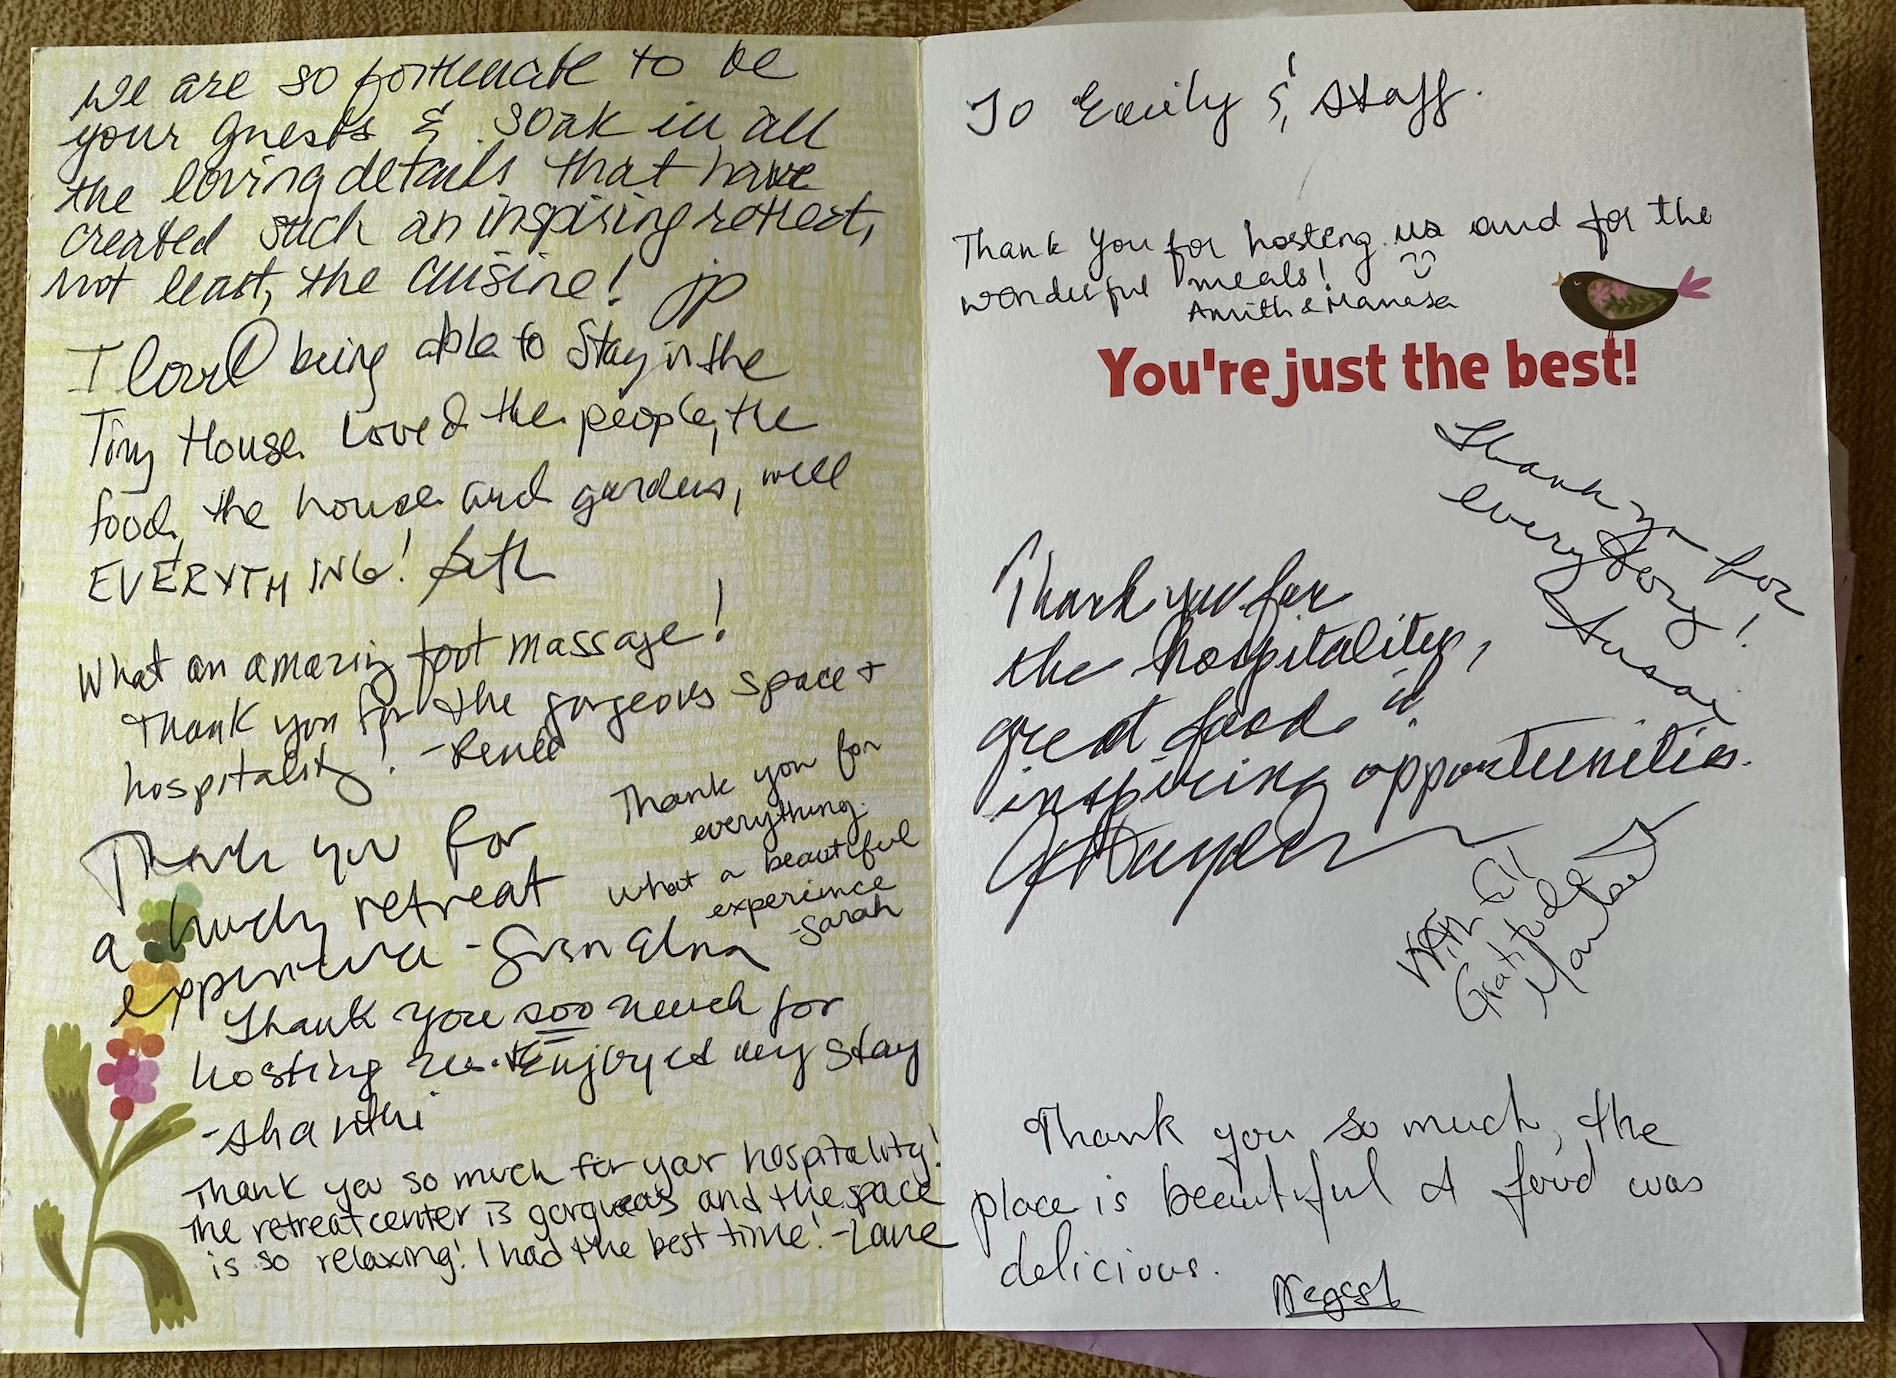 We are so fortunate to be
your guests & soak in all
the loving details that have
created such an inspiring retreat,
not least, the cuisine! jp
I loved being able to stay in the
Tiny House. Loved the people, the
food, the house and gardens, well
EVERYTHING! Beth
What an amazing foot massage!
Thank you for the gorgeous space +
hospitality! -Renee
Thank you for
everything.
What a beautiful
experience
-Sarah
Thank you for
a lovely retreat
experience -
Thank you soo much for
hosting us. Enjoyed my stay
-Shanthi
Thank you so much for your hospitality!
The retreat center is gorgueous and the space
is so relaxing! I had the best time! -Lane
To Emily & Staff.
Thank you for hosting us and for the
wonderful meals!
Amith & Manasa
You're just the best!
Thank yo for
everything!
Susan
Thank you for
the hospitality,
great food &
inspiring opportunities.
With
Gratitude
Thank you so much, the
place is beautiful & food was
delicious.
Negest